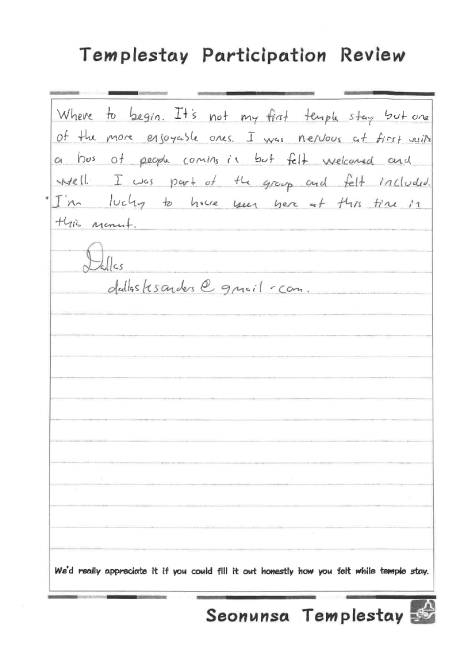 Templestay Participation Review
Where to begin. It's not my first temple stay but one
of the more enjoyable ones. I was nervous at first with
a bus of people coming in but felt welcomed and
well. I was part of the group and felt included.
I'm lucky to have been here at this time in
this moment.
Dallas
@gmail.com.
We'd really appreciate it if you could fill it out honestly how you felt while temple stay.
Seonunsa Templestay